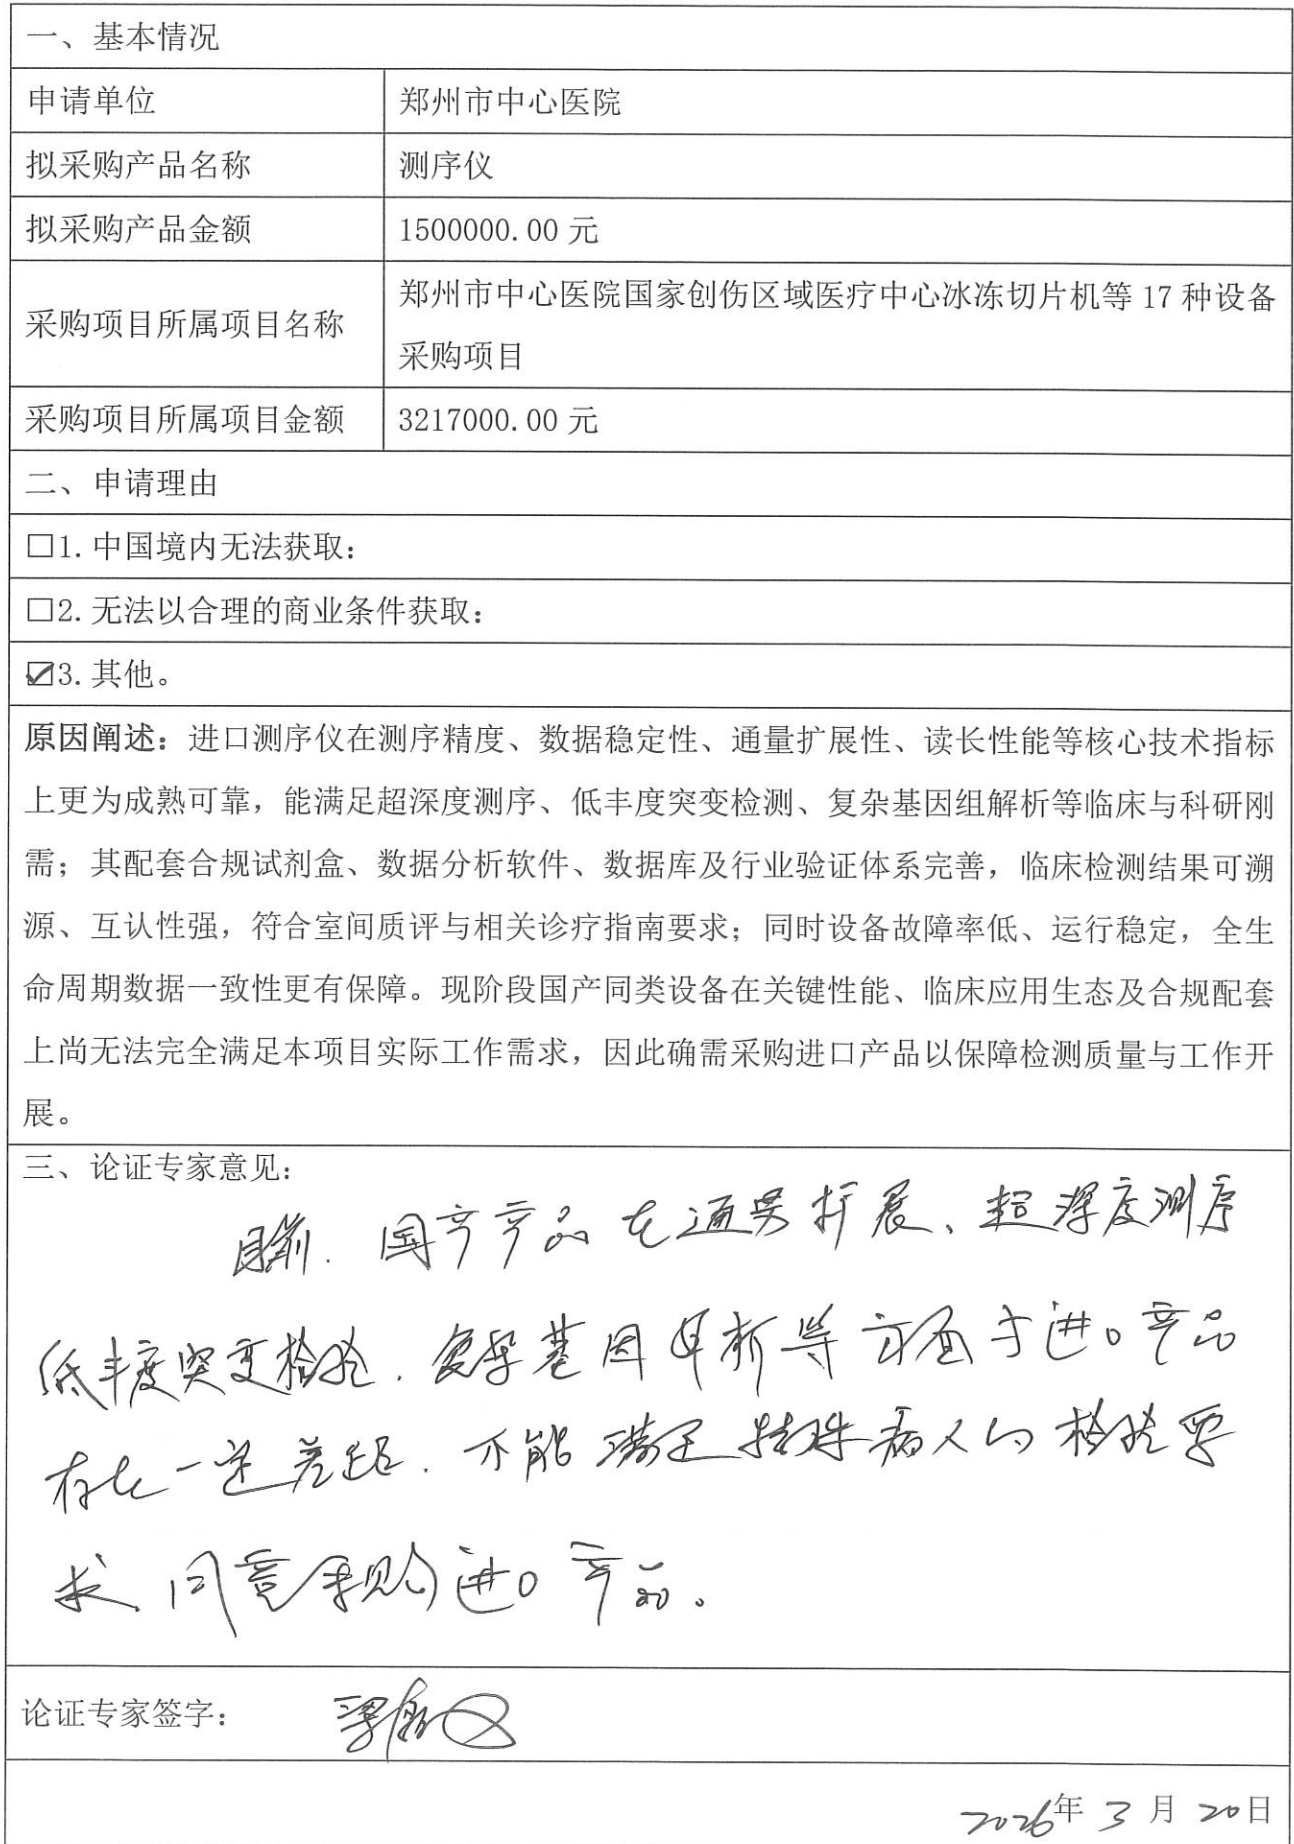 一、基本情况
申请单位
郑州市中心医院
拟采购产品名称
测序仪
拟采购产品金额
1500000.00 元
采购项目所属项目名称
郑州市中心医院国家创伤区域医疗中心冰冻切片机等 17 种设备
采购项目
采购项目所属项目金额
3217000.00 元
二、申请理由
☐1.中国境内无法获取：
☐2.无法以合理的商业条件获取：
☑3.其他。
原因阐述：进口测序仪在测序精度、数据稳定性、通量扩展性、读长性能等核心技术指标
上更为成熟可靠，能满足超深度测序、低丰度突变检测、复杂基因组解析等临床与科研刚
需；其配套合规试剂盒、数据分析软件、数据库及行业验证体系完善，临床检测结果可溯
源、互认性强，符合室间质评与相关诊疗指南要求；同时设备故障率低、运行稳定，全生
命周期数据一致性更有保障。现阶段国产同类设备在关键性能、临床应用生态及合规配套
上尚无法完全满足本项目实际工作需求，因此确需采购进口产品以保障检测质量与工作开
展。
三、论证专家意见：
目前．国产产品在通量扩展、超深度测序
低丰度突变检验．复杂基因解析等方面与进口产品
存在一定差距．不能满足特殊病人的检验要
求．同意采购进口产品。
论证专家签字：
2026年 3 月 20日